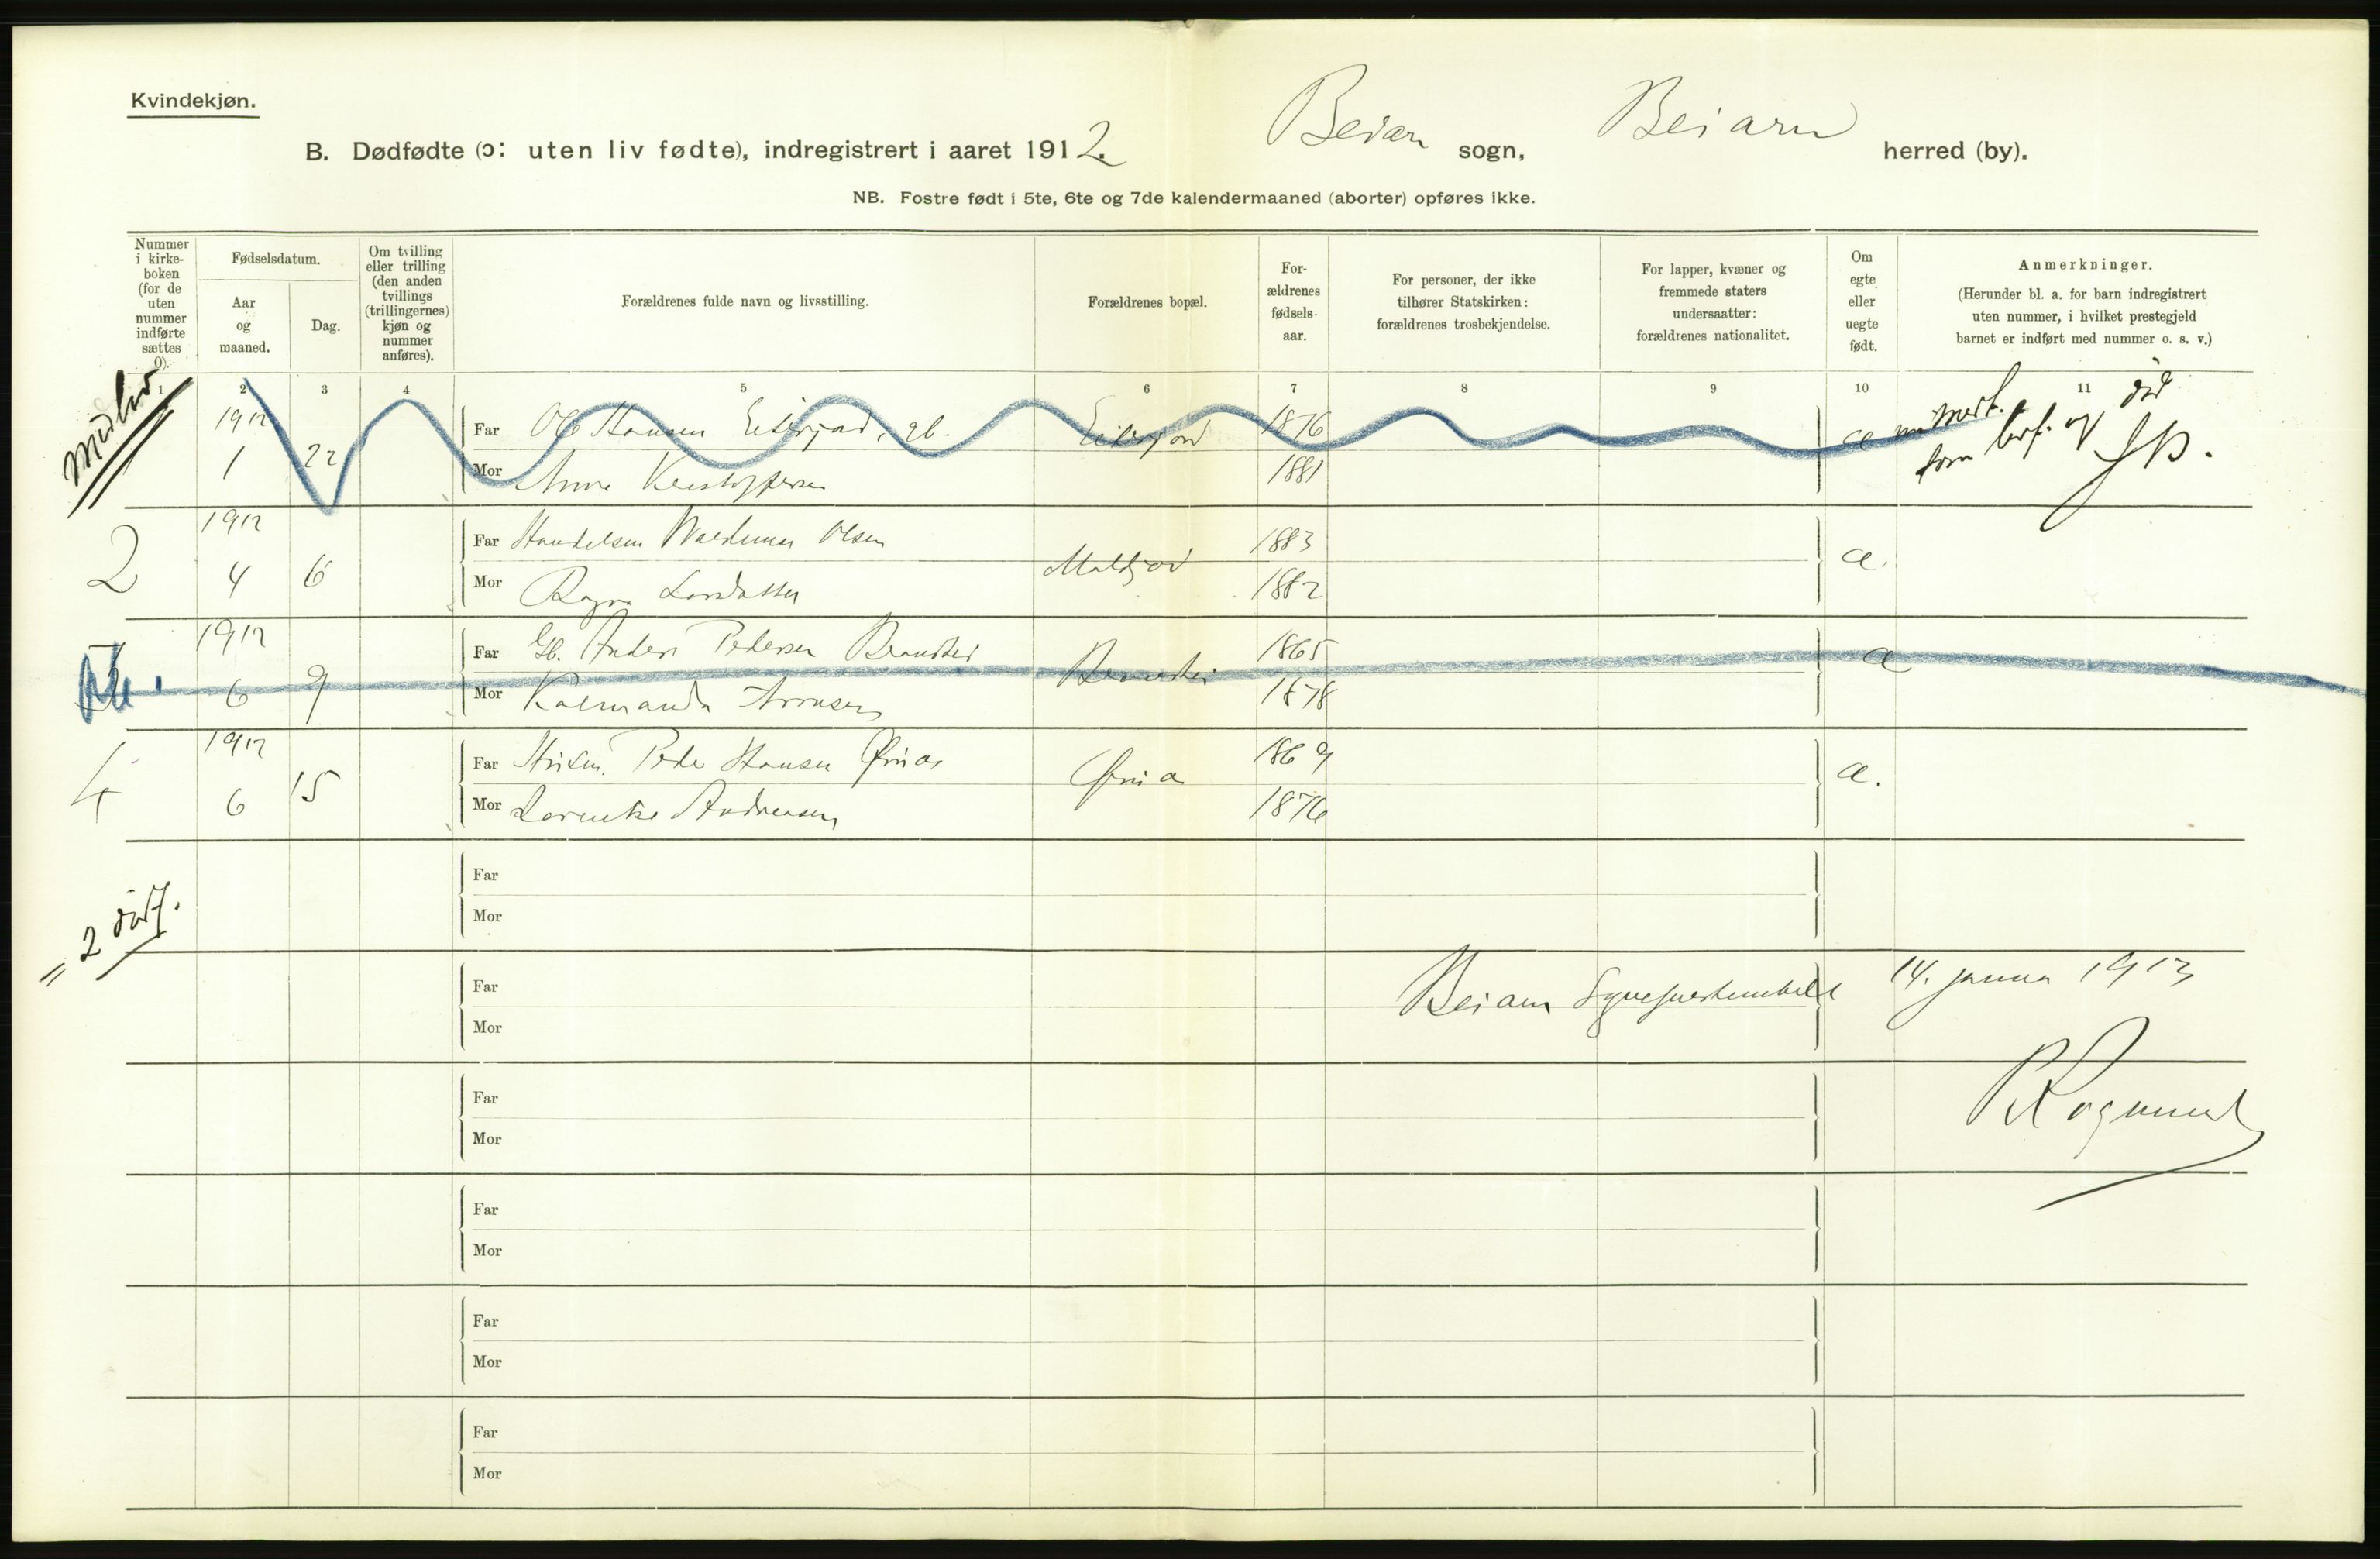 Kvindekjøn.
B. Dødfødte (ɔ: uten liv fødte), indregistrert i aaret 1912. Beiarn sogn, Beiarn herred (by).
NB. Fostre født i 5te, 6te og 7de kalendermaaned (aborter) opføres ikke.
Nummer i kirke-boken (for de uten nummer indførte sættes 0).
Fødselsdatum.
Aar og maaned.
Dag.
Om tvilling eller trilling (den anden tvillings (trillingernes) kjøn og nummer anføres).
Forældrenes fulde navn og livsstilling.
Forældrenes bopæl.
For-ældrenes fødsels-aar.
For personer, der ikke tilhører Statskirken: forældrenes trosbekjendelse.
For lapper, kvæner og fremmede staters undersaatter: forældrenes nationalitet.
Om egte eller uegte født.
Anmerkninger.
(Herunder bl. a. for barn indregistrert uten nummer, i hvilket prestegjeld barnet er indført med nummer o. s. v.)
1 2 3 4 5 6 7 8 9 10 11
1912 Far Hansen 1876
1 22 Mor Anna Kristoffersen 1881
som og
1912 Far Olsen 1883
2 4 6 Mor 1882 æ.
1912 Far Gb. Anders Pedersen 1865 æ
6 9 Mor 1878
1912 Far Peder Hansen 1869
4 6 15 Mor Andreasen 1876 æ.
Far
Mor
= 2 dødf.
Far
Mor
Beiarn 14. januar 1913
Far
Mor
Far
Mor
Far
Mor
Far
Mor